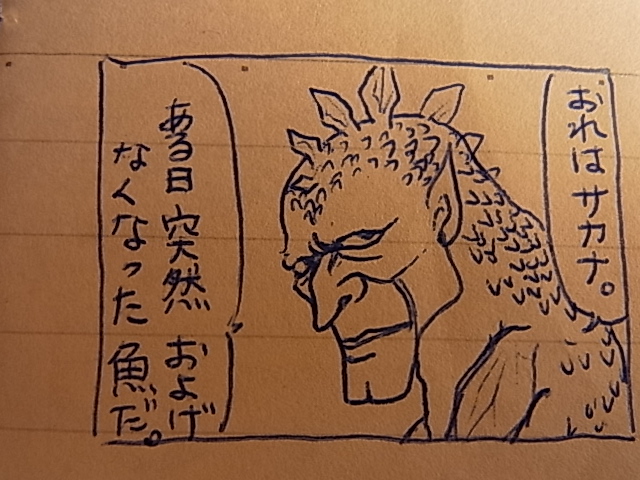 おれはサカナ。
ある日突然およげ
なくなった魚だ。